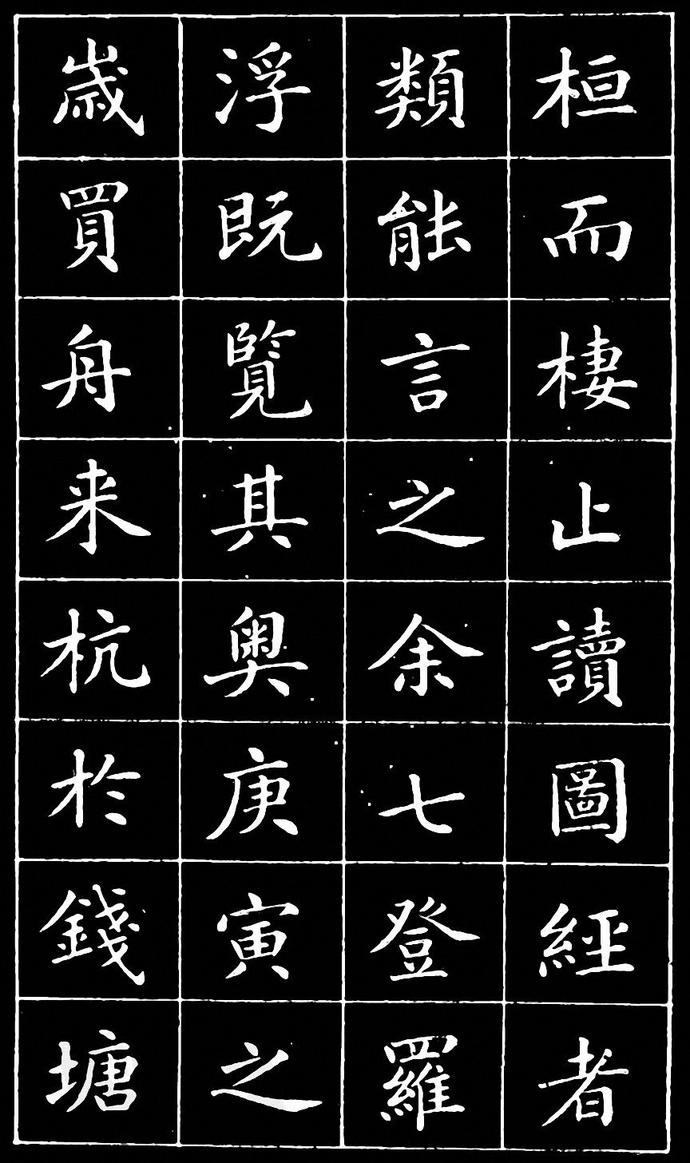 桓而棲止讀圖經者
類能言之余七登羅
浮既覽其奥庚寅之
歳買舟来杭於錢塘